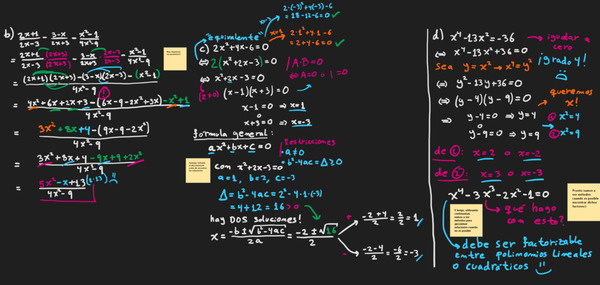 b) (2x+1)/(2x-3) - (3-x)/(2x+3) - (x²-1)/(4x²-9)
= (2x+1)/(2x-3) (2x+3)/(2x+3) - (3-x)/(2x+3) (2x-3)/(2x-3) - (x²-1)/(4x²-9)
= ((2x+1)(2x+3) - (3-x)(2x-3) - (x²-1))/(4x²-9)
= (4x²+6x+2x+3 - (6x-9-2x²+3x) - x²+1)/(4x²-9)
= (3x²+8x+4 - (9x-9-2x²))/(4x²-9)
= (3x²+8x+4-9x+9+2x²)/(4x²-9)
= (5x²-x+13)/(4x²-9)
"equivalente"
x=-3
2·(-3)²+4(-3)-6
=18-12-6=0 ✓
x=1
2·1²+4·1-6
=2+4-6=0 ✓
c) 2x²+4x-6=0
⇔ 2(x²+2x-3)=0
⇔ x²+2x-3=0
(2≠0) (x-1)(x+3)=0
A·B=0
⇔ A=0
x-1=0 ⇒ x=1
o
x+3=0 ⇒ x=-3
fórmula general:
ax²+bx+c=0
Restricciones
·a≠0
·b²-4ac=Δ≥0
con x²+2x-3=0
a=1, b=2, c=-3
Δ=b²-4ac=2²-4·1·(-3)
=4+12=16>0
hay DOS soluciones!
x= (-b±√(b²-4ac))/2a = (-2±√16)/2
+ (-2+4)/2=2/2=1
- (-2-4)/2=-6/2=-3
d) x⁴-13x²=-36
igualar a cero
⇔ x⁴-13x²+36=0
¡grado 4!
sea y=x² → x⁴=y²
⇔ y²-13y+36=0
⇔ (y-4)(y-9)=0
queremos x!
⇒ y-4=0 ⇒ y=4
① x²=4
o
y-9=0 ⇒ y=9
② x²=9
de ①: x=2 o x=-2
de ②: x=3 o x=-3
x⁴-3x³-2x²-1=0
¿qué hago con esto?
debe ser factorizable
entre polinomios lineales
o cuadráticos